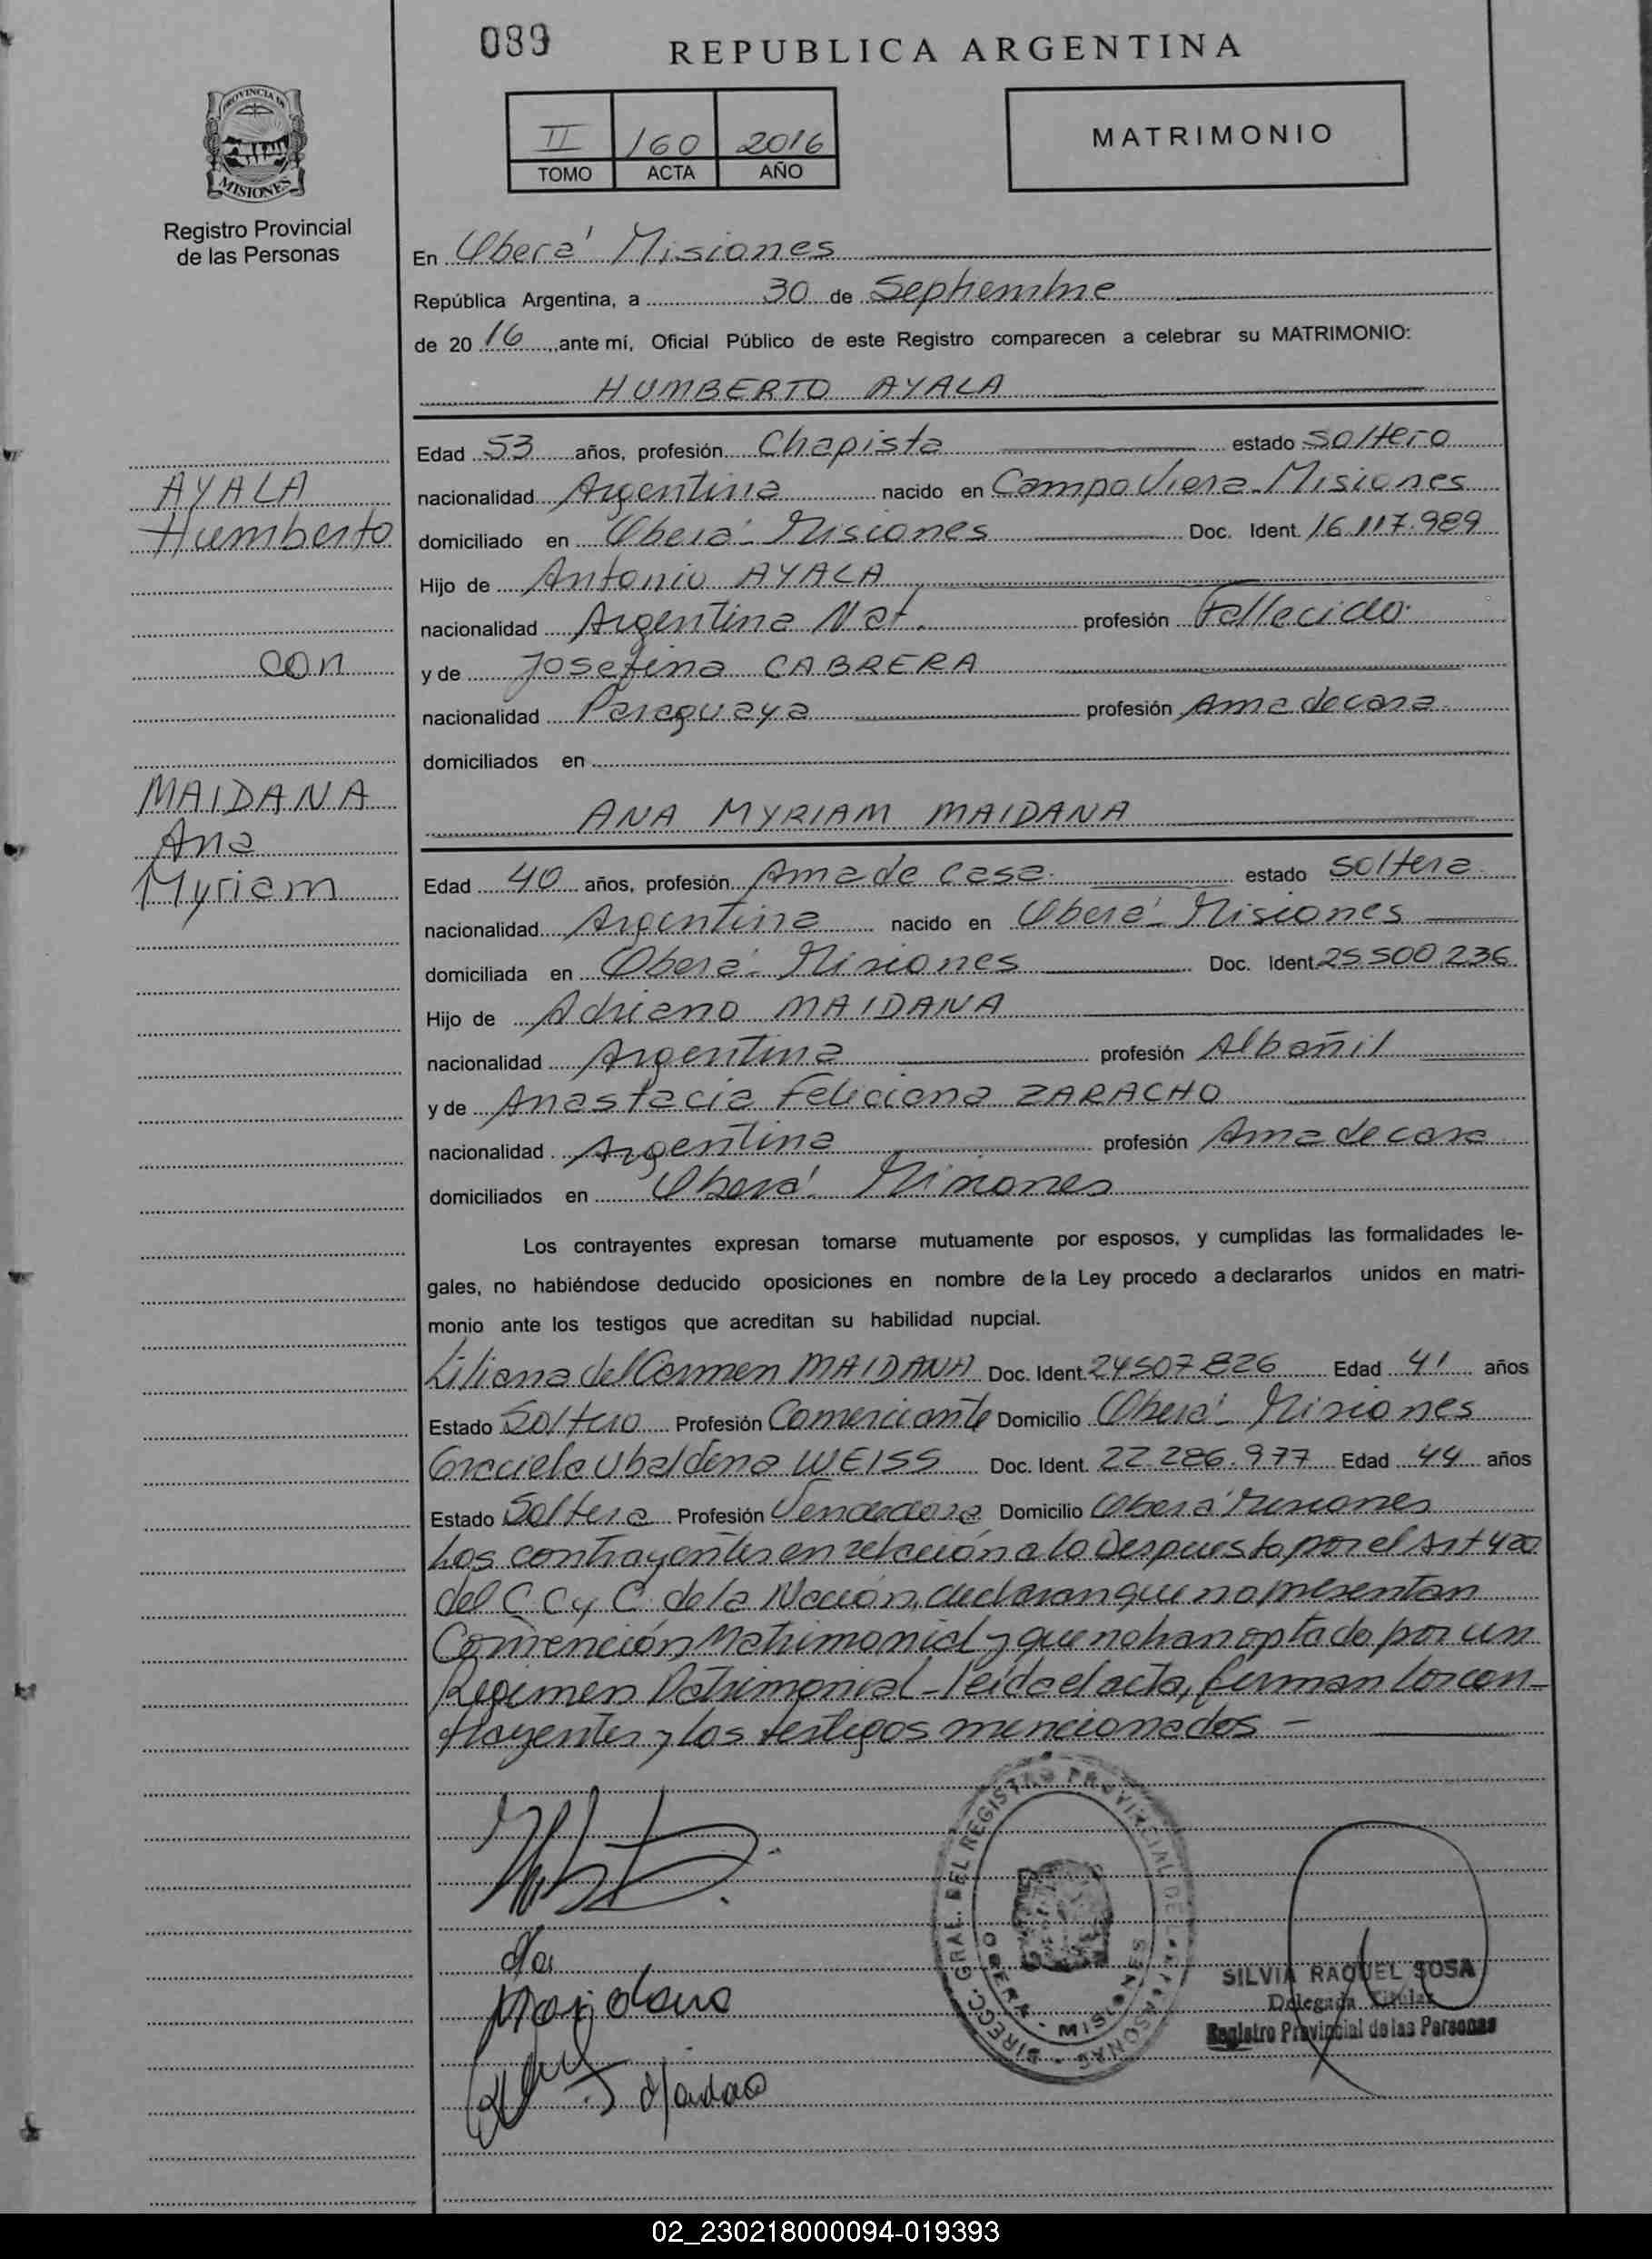 089
REPUBLICA ARGENTINA
II 160 2016
TOMO ACTA AÑO
MATRIMONIO
PROVINCIA DE
MISIONES
Registro Provincial
de las Personas
En Oberá Misiones
República Argentina, a 30 de Septiembre
de 20 16, ante mí, Oficial Público de este Registro comparecen a celebrar su MATRIMONIO:
HUMBERTO AYALA
Edad 53 años, profesión Chapista estado soltero
AYALA
nacionalidad Argentina nacido en Campo Viera-Misiones
Humberto
domiciliado en Oberá- Misiones Doc. Ident. 16.117.989
Hijo de Antonio AYALA
nacionalidad Argentina Nat. profesión Fallecido.
con
y de Josefina CABRERA
nacionalidad Paraguaya profesión Ama de casa
domiciliados en
MAIDANA
Ana
Myriam
ANA MYRIAM MAIDANA
Edad 40 años, profesión Ama de casa. estado soltera
nacionalidad Argentina nacido en Oberá- Misiones
domiciliada en Oberá- Misiones Doc. Ident. 25500.236
Hijo de Adriano MAIDANA
nacionalidad Argentina profesión Albañil
y de Anastacia Feliciana ZARACHO
nacionalidad Argentina profesión Ama de casa
domiciliados en Oberá- Misiones
Los contrayentes expresan tomarse mutuamente por esposos, y cumplidas las formalidades le-
gales, no habiéndose deducido oposiciones en nombre de la Ley procedo a declararlos unidos en matri-
monio ante los testigos que acreditan su habilidad nupcial.
Liliana del Carmen MAIDANA Doc. Ident. 24507826 Edad 41 años
Estado Soltero Profesión Comerciante Domicilio Oberá- Misiones
Graciela Ubaldena WEISS Doc. Ident. 22.286.977 Edad 44 años
Estado Soltera Profesión Vendedora Domicilio Oberá Misiones
Los contrayentes en relación a lo Despuesto por el Art 420
del C.C y C. de la Nación, declaran que no presentan
Convención Matrimonial y que no han optado por un
Regimen Patrimonial - leída el acta, firman los con-
trayentes y los testigos mencionados -
Maidana
DIRECC. GRAL. DEL REGISTRO PROVINCIAL DE LAS PERSONAS
OBERA - MISIONES
SILVIA RAQUEL SOSA
Delegada Titular
Registro Provincial de las Personas
02_230218000094-019393